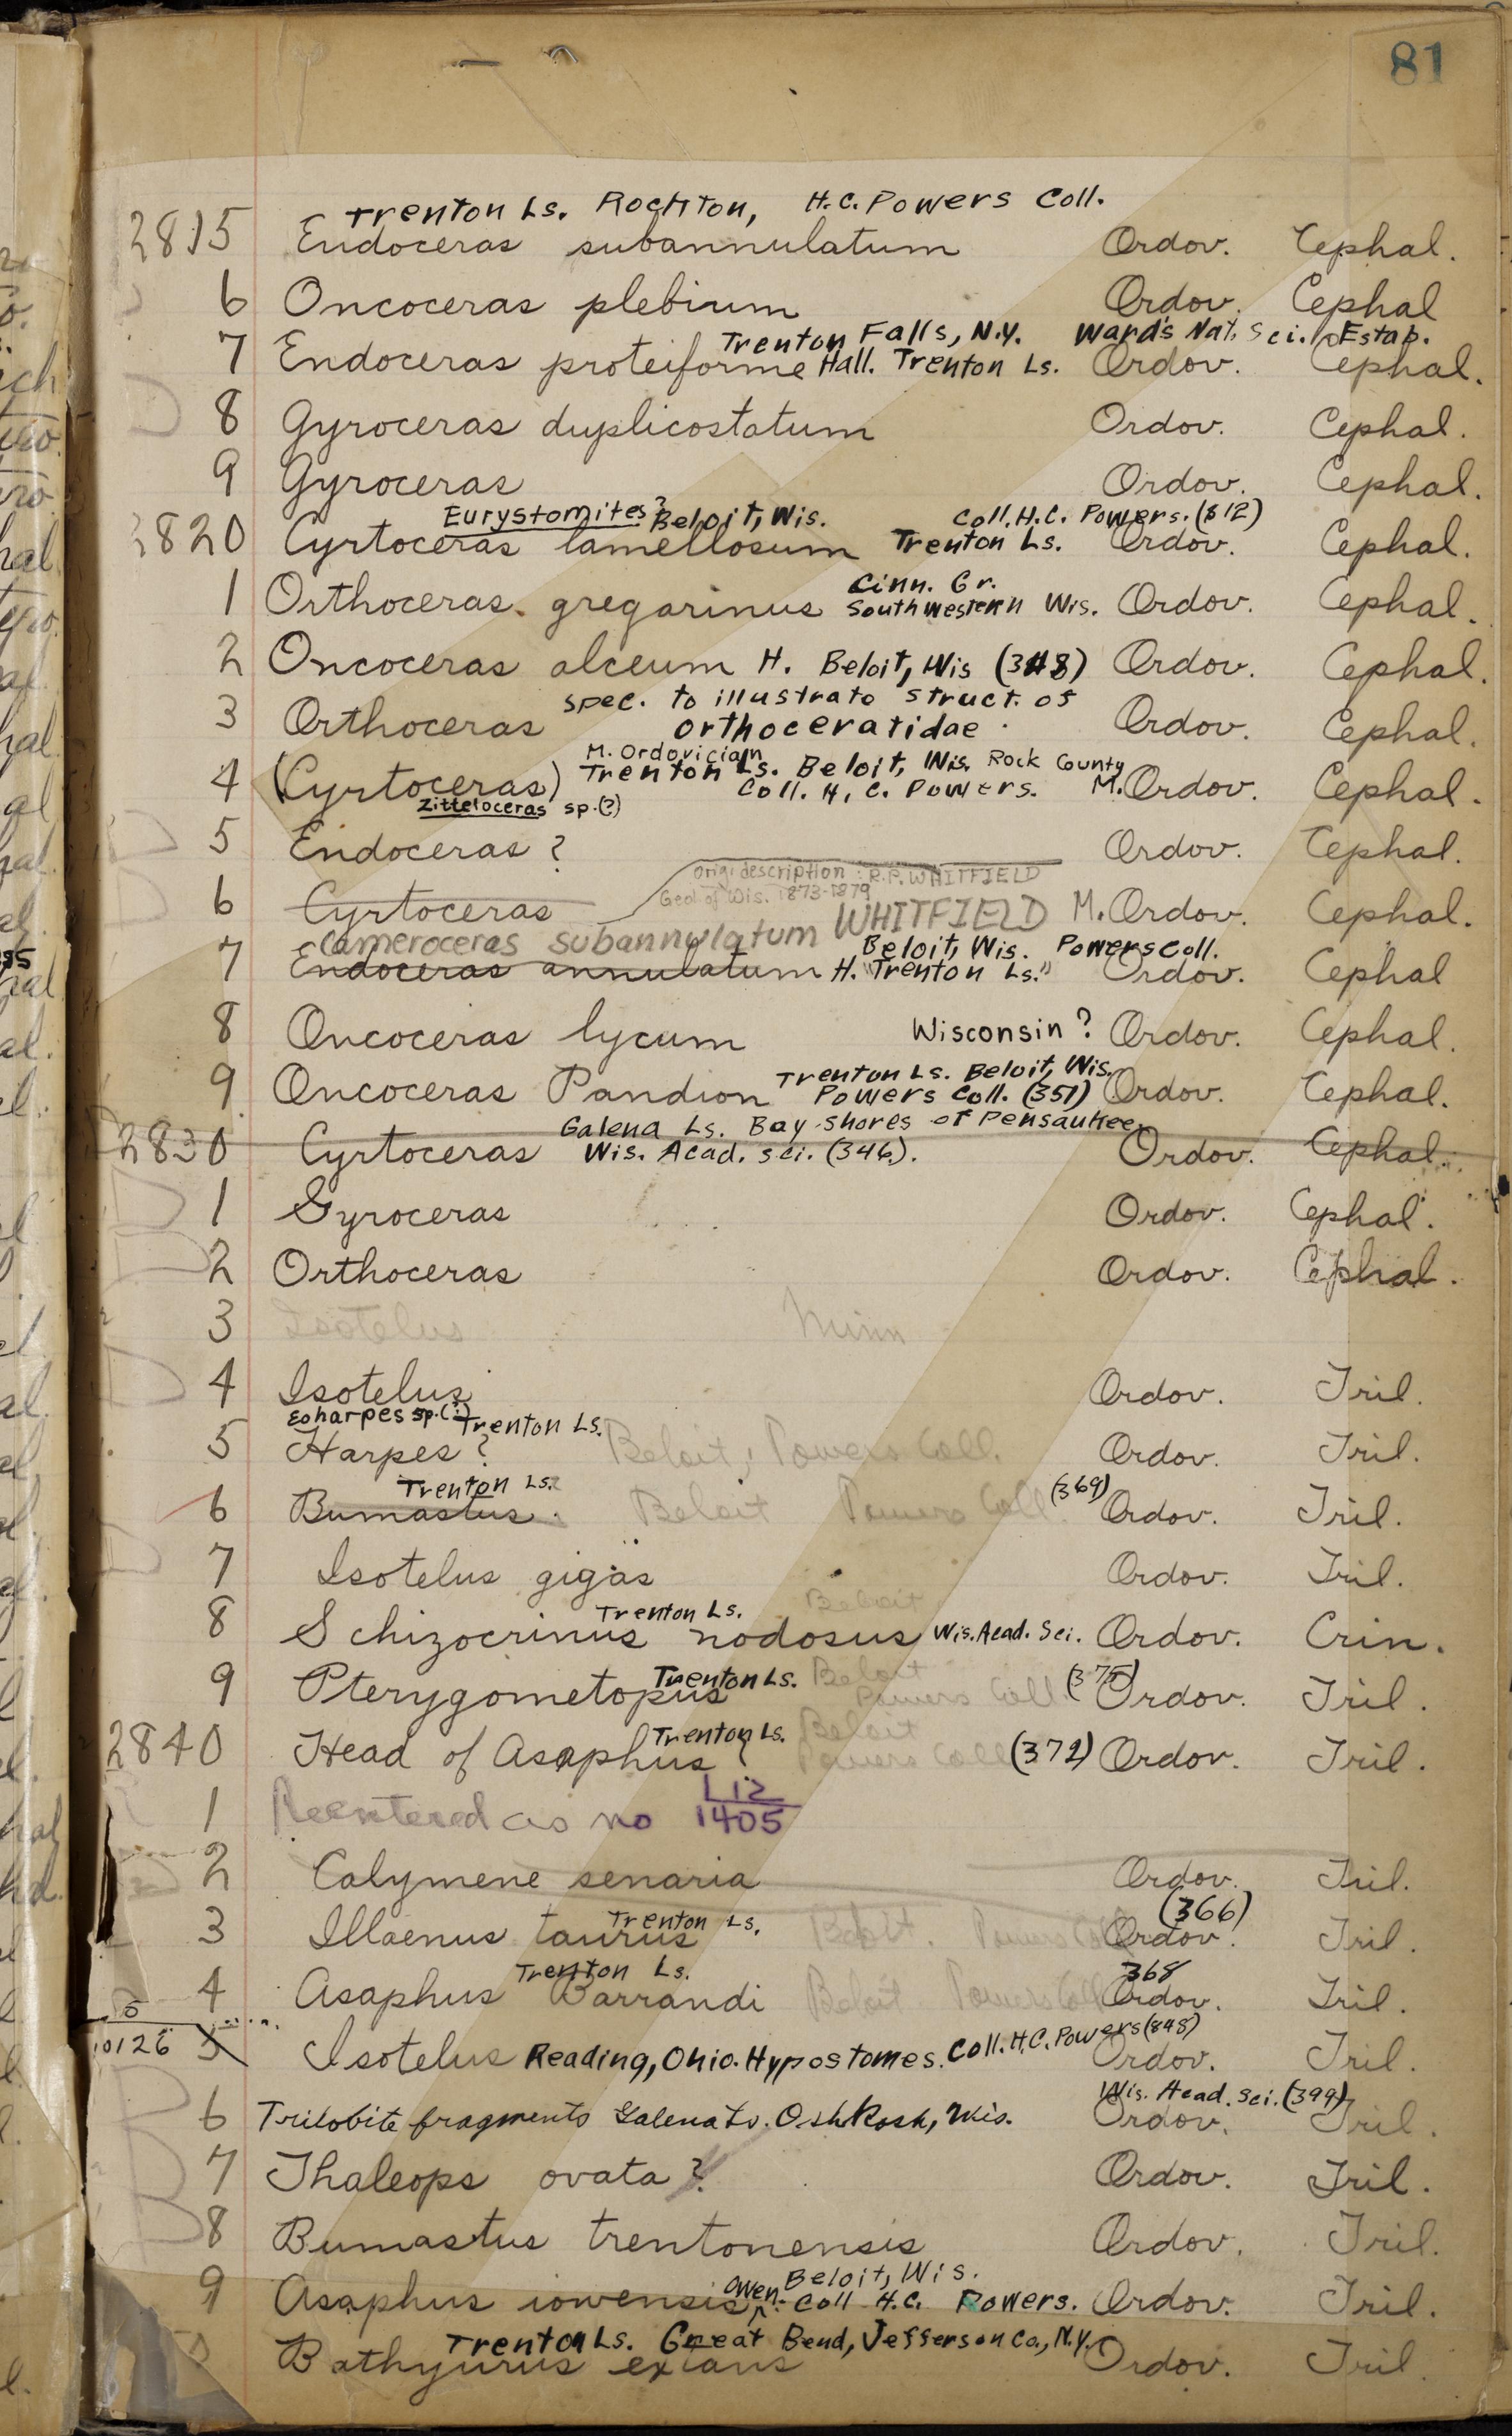 81
Trenton Ls. Rockton, H.C. Powers Coll.
2815 Endoceras subannulatum Ordov. Cephal.
6 Oncoceras plebium Ordov. Cephal
Trenton Falls, N.Y. Ward's Nat. Sci. Estab.
7 Endoceras proteiforme Hall. Trenton Ls. Ordov. Cephal.
8 Gyroceras duplicostatum Ordov. Cephal.
9 Gyroceras Ordov. Cephal.
Eurystomites? Beloit, Wis. Coll. H.C. Powers. (812)
2820 Cyrtoceras lamellosum Trenton Ls. Ordov. Cephal.
Cinn. Gr.
1 Orthoceras gregarinus Southwestern Wis. Ordov. Cephal.
2 Oncoceras alceum H. Beloit, Wis (348) Ordov. Cephal.
Spec. to illustrate struct. of
3 Orthoceras orthoceratidae Ordov. Cephal.
M. Ordovician
Trenton Ls. Beloit, Wis. Rock County
4 (Cyrtoceras) Coll. H. C. Powers. M. Ordov. Cephal.
Zitteloceras sp.(?)
5 Endoceras? Ordov. Cephal.
orig. description: R.P. WHITFIELD
Geol of Wis. 1873-1879
6 Cyrtoceras M. Ordov. Cephal.
Cameroceras subannulatum WHITFIELD
Beloit, Wis. Powers coll.
7 Endoceras annulatum H. "Trenton Ls." Ordov. Cephal
8 Oncoceras lycum Wisconsin? Ordov. Cephal.
Trenton Ls. Beloit, Wis.
9 Oncoceras Pandion Powers Coll. (351) Ordov. Cephal.
Galena Ls. Bay shores of Pensaukee
2830 Cyrtoceras Wis. Acad. Sci. (346). Ordov. Cephal.
1 Gyroceras Ordov. Cephal.
2 Orthoceras Ordov. Cephal.
3 Isotelus Minn
4 Isotelus Ordov. Tril.
Eoharpes sp.(?) Trenton Ls.
5 Harpes? Beloit, Powers Coll. Ordov. Tril.
Trenton Ls.
6 Bumastus Beloit Powers Coll. (369) Ordov. Tril.
7 Isotelus gigas Ordov. Tril.
Trenton Ls. Beloit
8 Schizocrinus nodosus Wis. Acad. Sci. Ordov. Crin.
Trenton Ls. Beloit
9 Pterygometopus Powers Coll. Ordov. Tril.
Trenton Ls. Beloit
2840 Head of Asaphus? Powers Coll (372) Ordov. Tril.
1 Reentered as no L12
1405
2 Calymene senaria Ordov. Tril.
Trenton Ls. (366)
3 Illaenus taurus Beloit. Powers Coll Ordov. Tril.
Trenton Ls. 368
4 Asaphus Barrandi Beloit Powers Coll Ordov. Tril.
5
10126
Coll. H.C. Powers (848)
5 Isotelus Reading, Ohio. Hypostomes. Ordov. Tril.
Wis. Acad. Sci. (399)
6 Trilobite fragments Galena Ls. Oshkosh, Wis. Ordov. Tril.
7 Thaleops ovata? Ordov. Tril.
8 Bumastus trentonensis Ordov. Tril.
Owen. Beloit, Wis.
9 Asaphus iowensis Coll. H.C. Powers. Ordov. Tril.
Trenton Ls. Great Bend, Jefferson Co., N.Y.
Bathyurus extans Ordov. Tril.